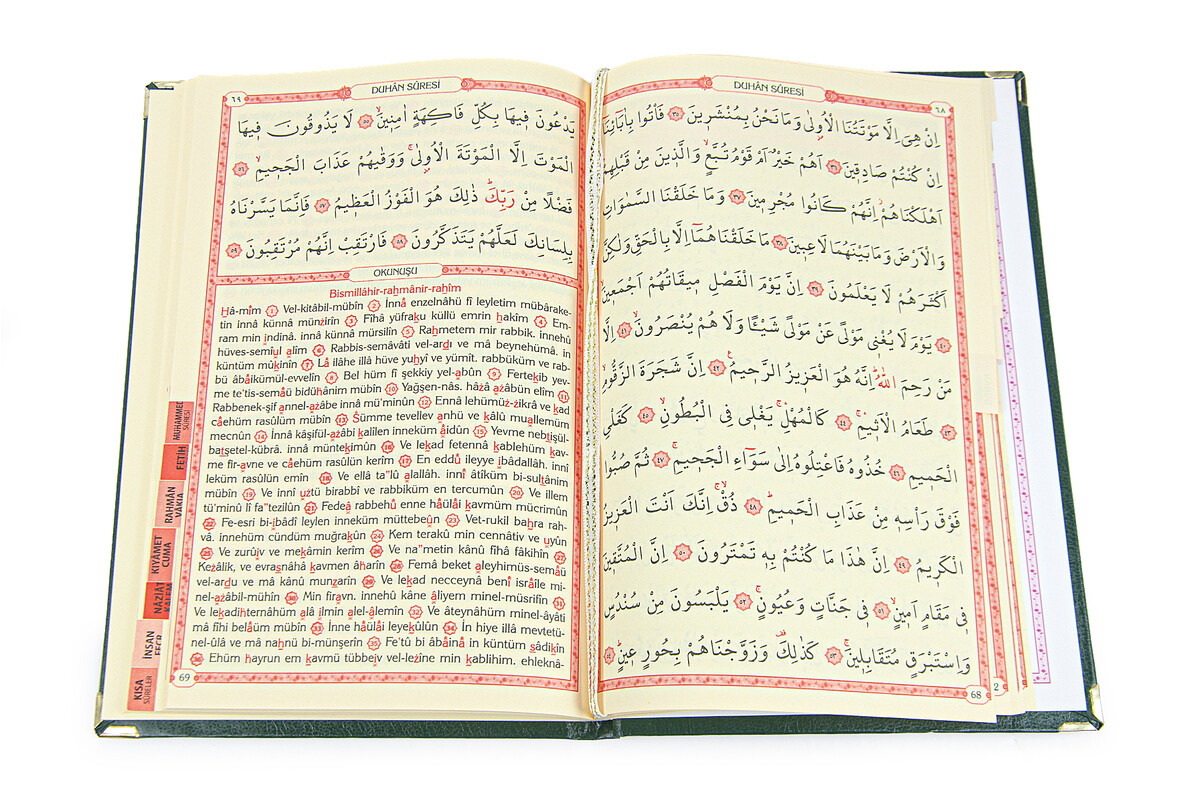 DUHÂN SÛRESİ
٦٨
اِنْ هِىَ اِلَّا مَوْتَتُنَا الْاُو۫لٰى وَمَا نَحْنُ بِمُنْشَر۪ينَ ٣٥ فَأْتُوا بِاٰبَٓائِنَٓا
اِنْ كُنْتُمْ صَادِق۪ينَ ٣٦ اَهُمْ خَيْرٌ اَمْ قَوْمُ تُبَّعٍۙ وَالَّذ۪ينَ مِنْ قَبْلِهِمْ
اَهْلَكْنَاهُمْۘ اِنَّهُمْ كَانُوا مُجْرِم۪ينَ ٣٧ وَمَا خَلَقْنَا السَّمٰوَاتِ
وَالْاَرْضَ وَمَا بَيْنَهُمَا لَاعِب۪ينَ ٣٨ مَا خَلَقْنَاهُمَٓا اِلَّا بِالْحَقِّ وَلٰكِنَّ
اَكْثَرَهُمْ لَا يَعْلَمُونَ ٣٩ اِنَّ يَوْمَ الْفَصْلِ م۪يقَاتُهُمْ اَجْمَع۪ينَۙ
٤٠ يَوْمَ لَا يُغْن۪ى مَوْلًى عَنْ مَوْلًى شَيْـًٔا وَلَا هُمْ يُنْصَرُونَۙ ٤١ اِلَّا
مَنْ رَحِمَ اللّٰهُۜ اِنَّهُ هُوَ الْعَز۪يزُ الرَّح۪يمُ۟ ٤٢ اِنَّ شَجَرَةَ الزَّقُّومِۙ
٤٣ طَعَامُ الْاَث۪يمِۚۛ ٤٤ كَالْمُهْلِۚۛ يَغْل۪ى فِى الْبُطُونِۙ ٤٥ كَغَلْىِ
الْحَم۪يمِ ٤٦ خُذُوهُ فَاعْتِلُوهُ اِلٰى سَوَٓاءِ الْجَح۪يمِۗ ٤٧ ثُمَّ صُبُّوا
فَوْقَ رَأْسِه۪ مِنْ عَذَابِ الْحَم۪يمِۜ ٤٨ ذُقْۚۙ اِنَّكَ اَنْتَ الْعَز۪يزُ
الْكَر۪يمُ ٤٩ اِنَّ هٰذَا مَا كُنْتُمْ بِه۪ تَمْتَرُونَ ٥٠ اِنَّ الْمُتَّق۪ينَ
ف۪ى مَقَامٍ اَم۪ينٍۙ ٥١ ف۪ى جَنَّاتٍ وَعُيُونٍۚ ٥٢ يَلْبَسُونَ مِنْ سُنْدُسٍ
وَاِسْتَبْرَقٍ مُتَقَابِل۪ينَۚ ٥٣ كَذٰلِكَ۠ وَزَوَّجْنَاهُمْ بِحُورٍ ع۪ينٍۜ ٥٤
68
2
DUHÂN SÛRESİ
٦٩
يَدْعُونَ ف۪يهَا بِكُلِّ فَاكِهَةٍ اٰمِن۪ينَۙ ٥٥ لَا يَذُوقُونَ ف۪يهَا
الْمَوْتَ اِلَّا الْمَوْتَةَ الْاُو۫لٰىۚ وَوَقٰيهُمْ عَذَابَ الْجَح۪يمِۙ ٥٦
فَضْلًا مِنْ رَبِّكَۜ ذٰلِكَ هُوَ الْفَوْزُ الْعَظ۪يمُ ٥٧ فَاِنَّمَا يَسَّرْنَاهُ
بِلِسَانِكَ لَعَلَّهُمْ يَتَذَكَّرُونَ ٥٨ فَارْتَقِبْ اِنَّهُمْ مُرْتَقِبُونَ ٥٩
OKUNUŞU
Bismillâhir-rahmânir-rahîm
Hâ-mîm 1 Vel-kitâbil-mübîn 2 İnnâ enzelnâhü fî leyletim mübârake-
tin innâ künnâ münzirîn 3 Fîhâ yüfraku küllü emrin hakîm 4 Em-
ram min indinâ. innâ künnâ mürsilîn 5 Rahmetem mir rabbik. innehû
hüves-semîul alîm 6 Rabbis-semâvâti vel-ardı ve mâ beynehümâ. in
küntüm mûkinîn 7 Lâ ilâhe illâ hüve yuhyî ve yümît. rabbüküm ve rab-
bü âbâikümül-evvelîn 8 Bel hüm fî şekkiy yel-abûn 9 Fertekib yev-
me te'tis-semâü bidühânim mübîn 10 Yağşen-nâs. hâzâ azâbün elîm 11
Rabbenek-şif annel-azâbe innâ mü'minûn 12 Ennâ lehümüz-zikrâ ve kad
câehüm rasûlüm mübîn 13 Sümme tevellev anhü ve kâlû muallemüm
mecnûn 14 İnnâ kâşifül-azâbi kalîlen inneküm âidûn 15 Yevme nebtişül-
batşetel-kübrâ. innâ müntekimûn 16 Ve lekad fetennâ kablehüm kav-
me fir-avne ve câehüm rasûlün kerîm 17 En eddû ileyye ıbâdallâh. innî
leküm rasûlün emîn 18 Ve ellâ ta"lû alallâh. innî âtîküm bi-sultânim
mübîn 19 Ve innî uztü birabbî ve rabbiküm en tercumûn 20 Ve illem
tü'minû lî fa"tezilûn 21 Fedeâ rabbehû enne hâülâi kavmüm mücrimûn
22 Fe-esri bi-ıbâdî leylen inneküm müttebeûn 23 Vet-rukil bahra rah-
vâ. innehüm cündüm muğrakûn 24 Kem terakû min cennâtiv ve uyûn
25 Ve zurûıv ve mekâmin kerîm 26 Ve na"metin kânû fîhâ fâkihîn 27
Kezâlik, ve evrasnâhâ kavmen âharîn 28 Femâ beket aleyhimüs-semâü
vel-ardu ve mâ kânû munzarîn 29 Ve lekad necceynâ benî isrâîle mi-
nel-azâbil-mühîn 30 Min firavn. innehû kâne âliyem minel-müsrifîn 31
Ve lekadihternâhüm alâ ılmin alel-âlemîn 32 Ve âteynâhüm minel-âyâti
mâ fîhi belâüm mübîn 33 İnne hâülâi leyekûlûn 34 İn hiye illâ mevtetü-
nel-ûlâ ve mâ nahnü bi-münşerîn 35 Fe'tû bi âbâinâ in küntüm sâdikîn
36 Ehüm hayrun em kavmü tübbeıv vel-lezîne min kablihim. ehleknâ-
69
MUHAMMED
SÛRESİ
FETİH
RAHMÂN
VÂKIA
KIYÂMET
CUMA
NÂZİÂT
KALEM
İNSAN
FECR
KISA
SÛRELER